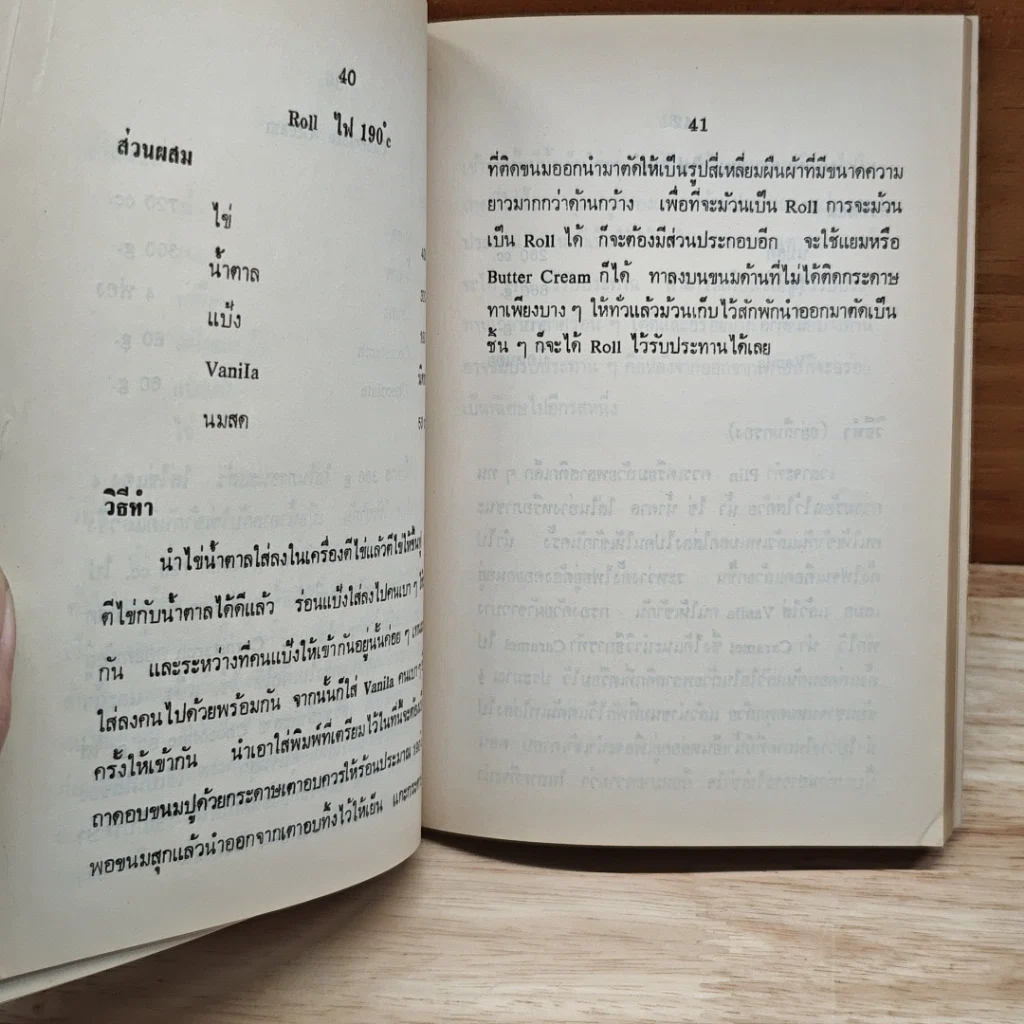 40
Roll ไฟ 190°c
ส่วนผสม
ไข่
น้ำตาล
แป้ง
Vanila
นมสด
วิธีทำ
นำไข่น้ำตาลใส่ลงในเครื่องตีไข่แล้วตีไข่ให้ขึ้นฟู
ตีไข่กับน้ำตาลได้ดีแล้ว ร่อนแป้งใส่ลงไปคนเบา ๆ
กัน และระหว่างที่คนแป้งให้เข้ากันอยู่นั้นค่อย ๆ
ใส่ลงคนไปด้วยพร้อมกัน จากนั้นก็ใส่ Vanila คนเบา ๆ
ครั้งให้เข้ากัน นำเอาใส่พิมพ์ที่เตรียมไว้ในที่นี้จะ
ถาดอบขนมปูด้วยกระดาษเตาอบควรให้ร้อนประมาณ
พอขนมสุกแล้วนำออกจากเตาอบทิ้งไว้ให้เย็น
41
ที่ติดขนมออกนำมาตัดให้เป็นรูปสี่เหลี่ยมผืนผ้าที่มีขนาดความ
ยาวมากกว่าด้านกว้าง เพื่อที่จะม้วนเป็น Roll การจะม้วน
เป็น Roll ได้ ก็จะต้องมีส่วนประกอบอีก จะใช้แยมหรือ
Butter Cream ก็ได้ ทาลงบนขนมด้านที่ไม่ได้ติดกระดาษ
ทาเพียงบาง ๆ ให้ทั่วแล้วม้วนเก็บไว้สักพักนำออกมาตัดเป็น
ชิ้น ๆ ก็จะได้ Roll ไว้รับประทานได้เลย